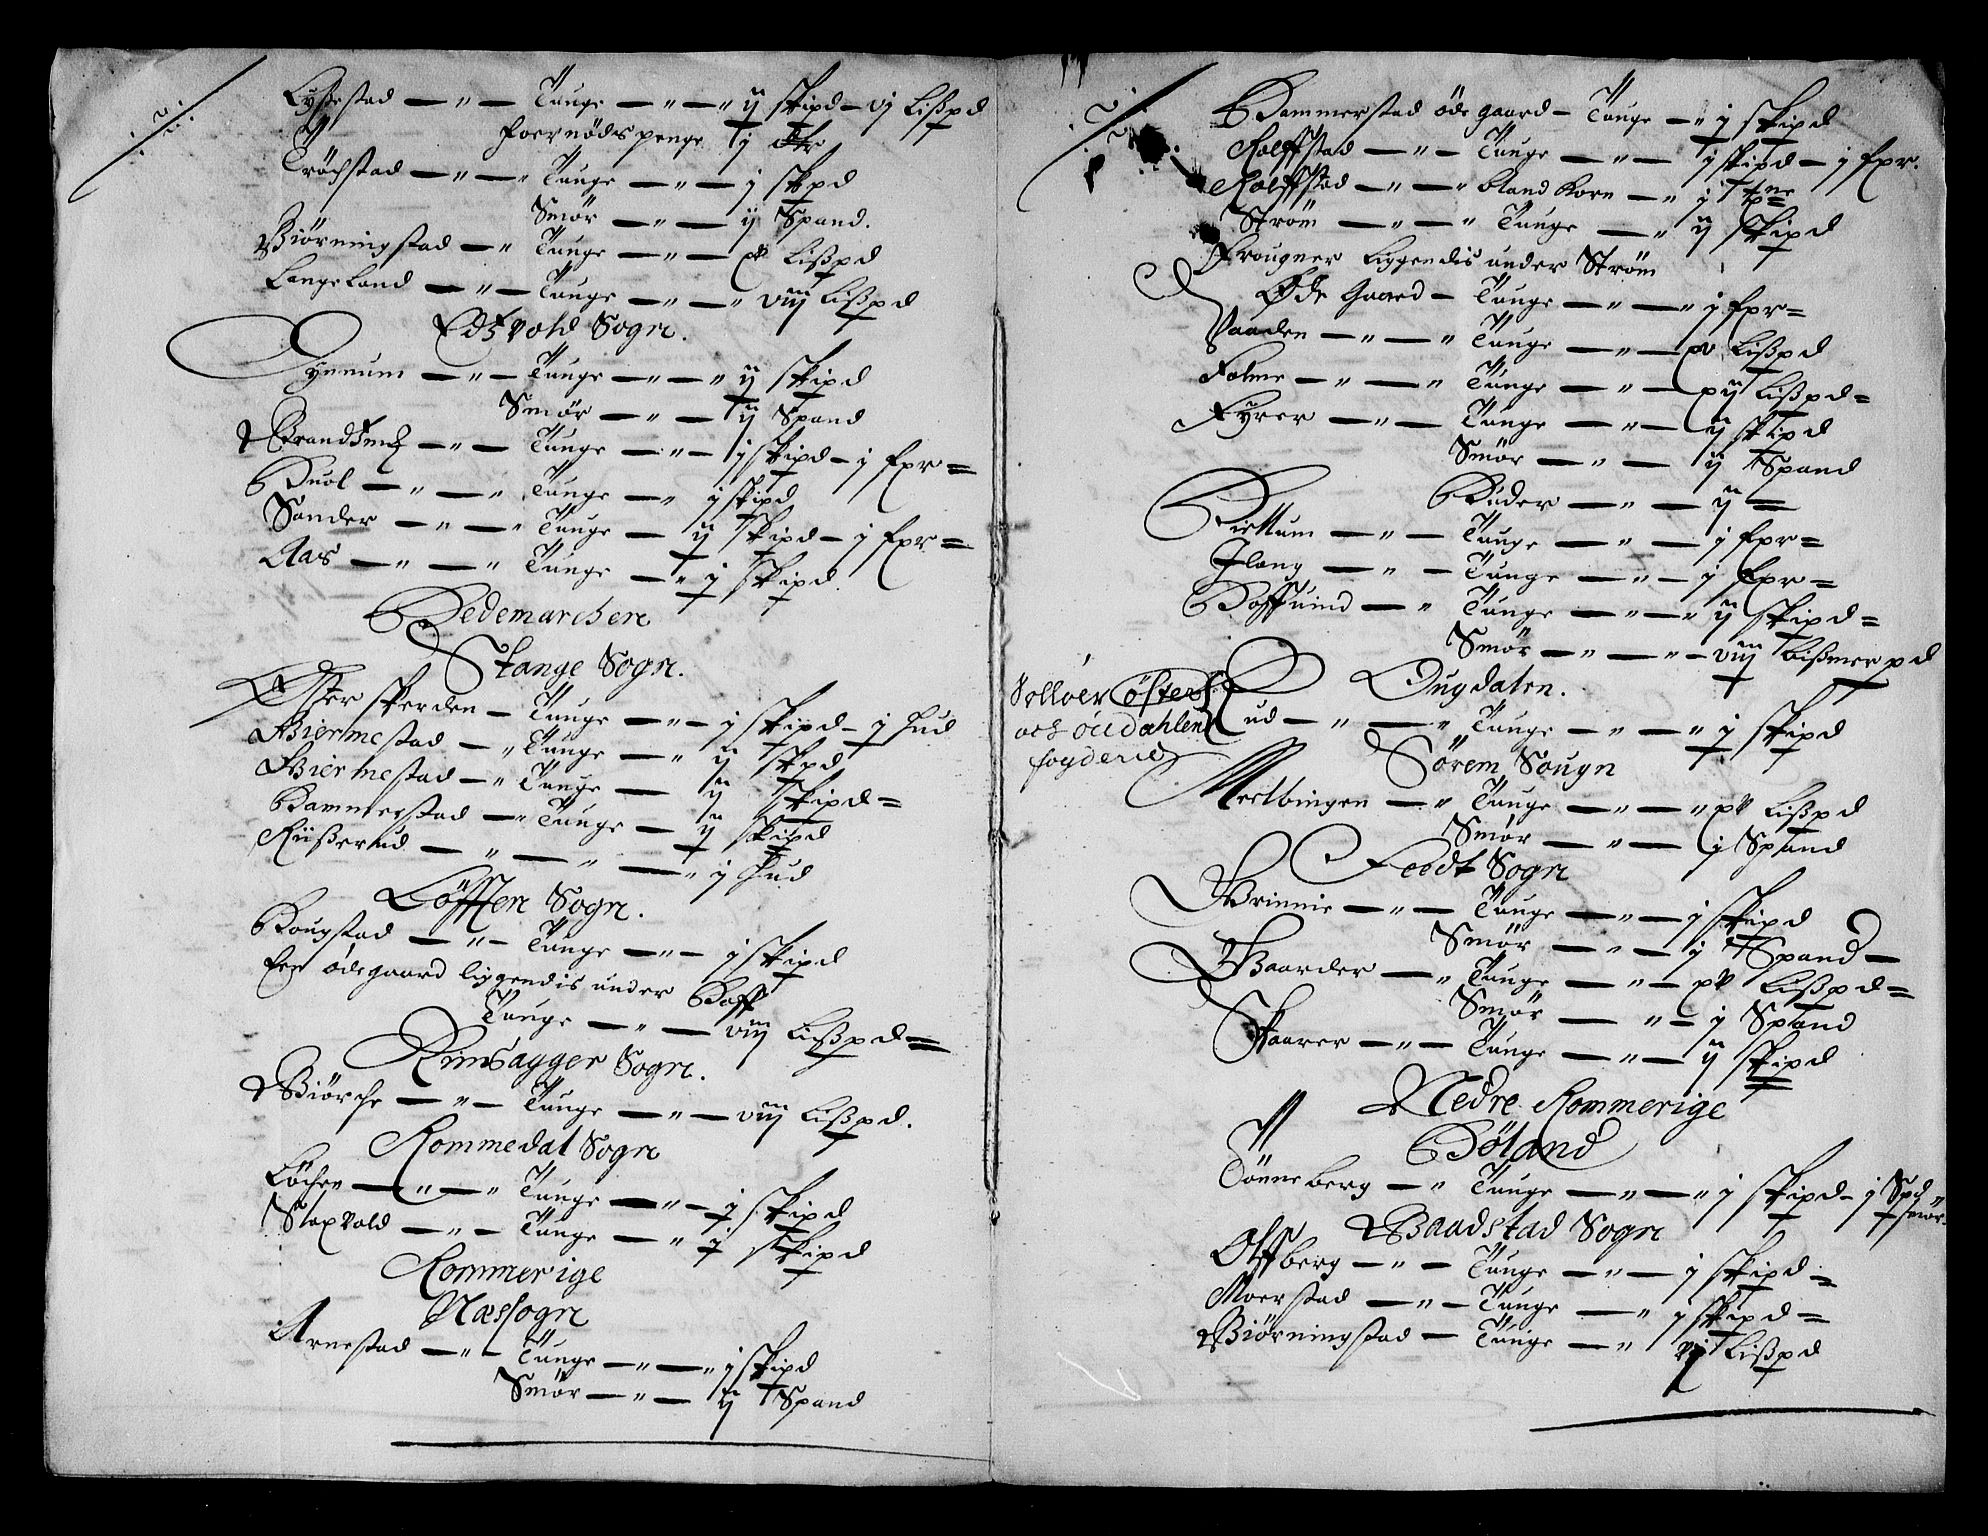 Lyßestad — " — Tunge — " — " ij skipd — vj Lißpd
Foernødspenge ij dlr
Trøchstad — " — " Tunge — " — j skpd
Smør — " — ij Spand.
Biørningstad — " Tunge — " — xv Lißpd
Langeland — " — Tunge — " — " viij Lißpd
Edtzvold Sogn.
Dynnum — " — Tunge — " — " ij skipd
Smør — " — ij Spand
Brandtzneß — " — Tunge — " — j skipd — j fxr =
Huol — " — " Tunge — " j skipd
Sander — " — " Tunge — ij skipd — j fxr =
Aas — " — " Tunge — " j skipd
Hedemarchen
Stange Sogn.
Øffer skerden — Tunge — " — j skipd — j hud
Biermestad — " Tunge — " ij skpd
Biermestad — " Tunge — ij skipd =
Hammerstad — " Tunge — ij skipd
Riißerud — " — " — " j hud
Løfften Sogn.
Hougstad — " — Tunge — " — j skipd
Een ødegaard liggendis under Hoff
Tunge — " — viij Lißpd =
Rinsagger Sogn.
Biørche — " — Tunge — " — viij Lißpd.
Rommedal Sogn
Løchen — " — " Tunge — " — j skipd
Staxvold — " — Tunge — " j skipd
Rommerige
Næssogn
Arnestad — " — Tunge — " — " j skipd
Smør — " — ij Spand
Hammerstad øde gaard — Tunge — " j skipd
Rolffstad — " — Tunge — " — j skipd — j fxr.
Rolffstad — " — " bland Korn — " j tne
Strøm — " — " Tunge — " ij skipd
Frougner liggendis under Strøm
Øde Gaard — Tunge — " — " j fxr =
Vaaden — " — " Tunge — " — xv Lißpd
Folme — " — " Tunge — " — xij Lißpd =
Fyrer — " — Tunge — " — ij skipd
Smør — " — ij Spand
Huder — " — ij =
Hiettum — " — Tunge — " — j fxr =
Jlang — " — Tunge — " — j fxr =
Hoffuind — " Tunge — " — " ij skipd =
Smør — " — " — viij bißmerpd
Ougdalen.
Solløer Østerd:
och oudahlens
fogderie
Rud — " — " Tunge — " — " j skipd
Sørem Sougn
Mertbingen — " Tunge — " — " xv Lißpd
Smør — " — j Spand
Feedt Sogn
Brinnie — " — Tunge — " — j skipd
Smør — " — j Spand —
Baarder — " Tunge — " — xv Lißpd =
Smør — " — j Spand
Skaarer — " — Tunge — " — ij skipd
Nedre Rommerige
Høland
Tønneberg — " Tunge — " — " j skipd — j Spd
smør.
Baadstad Sogn
Olffberg — " — Tunge — " — j skipd =
Moerstad — " — Tunge — " j skipd =
Biørningstad — Tunge — " Lißpd